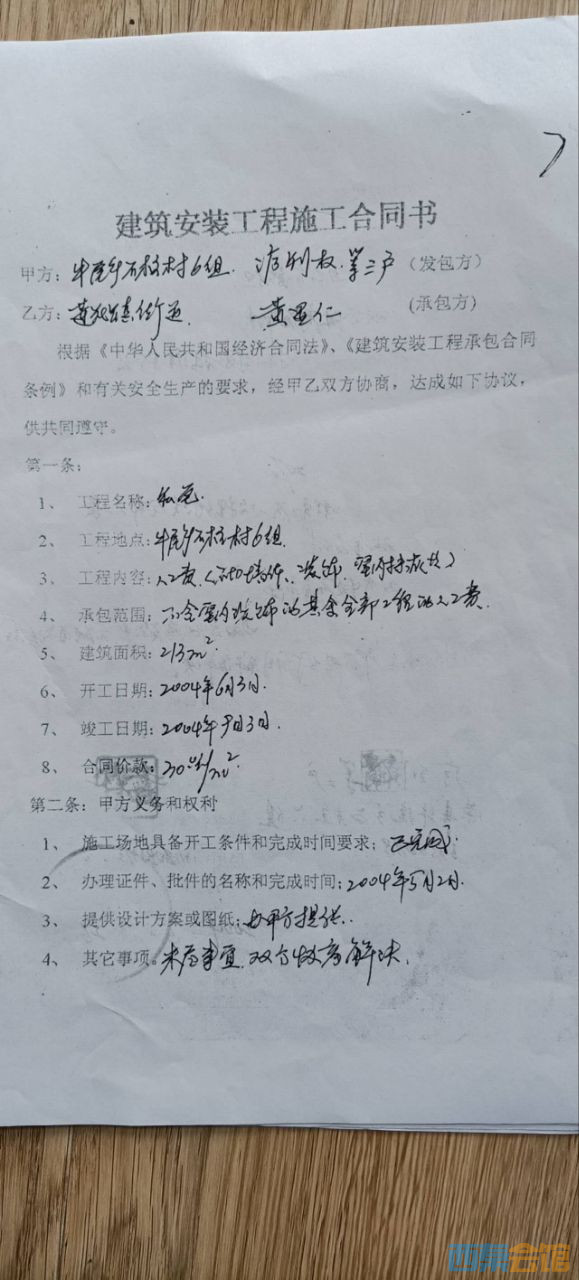 建筑安装工程施工合同书
甲方:牛尾乡石柱村6组. 权.等三户(发包方)
乙方: 黄显仁 (承包方)
根据《中华人民共和国经济合同法》、《建筑安装工程承包合同
条例》和有关安全生产的要求,经甲乙双方协商,达成如下协议,
供共同遵守。
第一条:
1、 工程名称:私宅.
2、 工程地点:牛尾乡石柱村6组.
3、 工程内容:人工费(
4、 承包范围:不含室内装饰的其余全部工程的人工费.
5、 建筑面积:213m².
6、 开工日期:2004年6月3日.
7、 竣工日期:2004年9月3日.
8、 合同价款:
第二条:甲方义务和权利
1、 施工场地具备开工条件和完成时间要求;已完成.
2、 办理证件、批件的名称和完成时间:2004年5月2日.
3、 提供设计方案或图纸:由甲方提供.
4、 其它事项。未尽事宜.双方协商解决.
西祠会馆